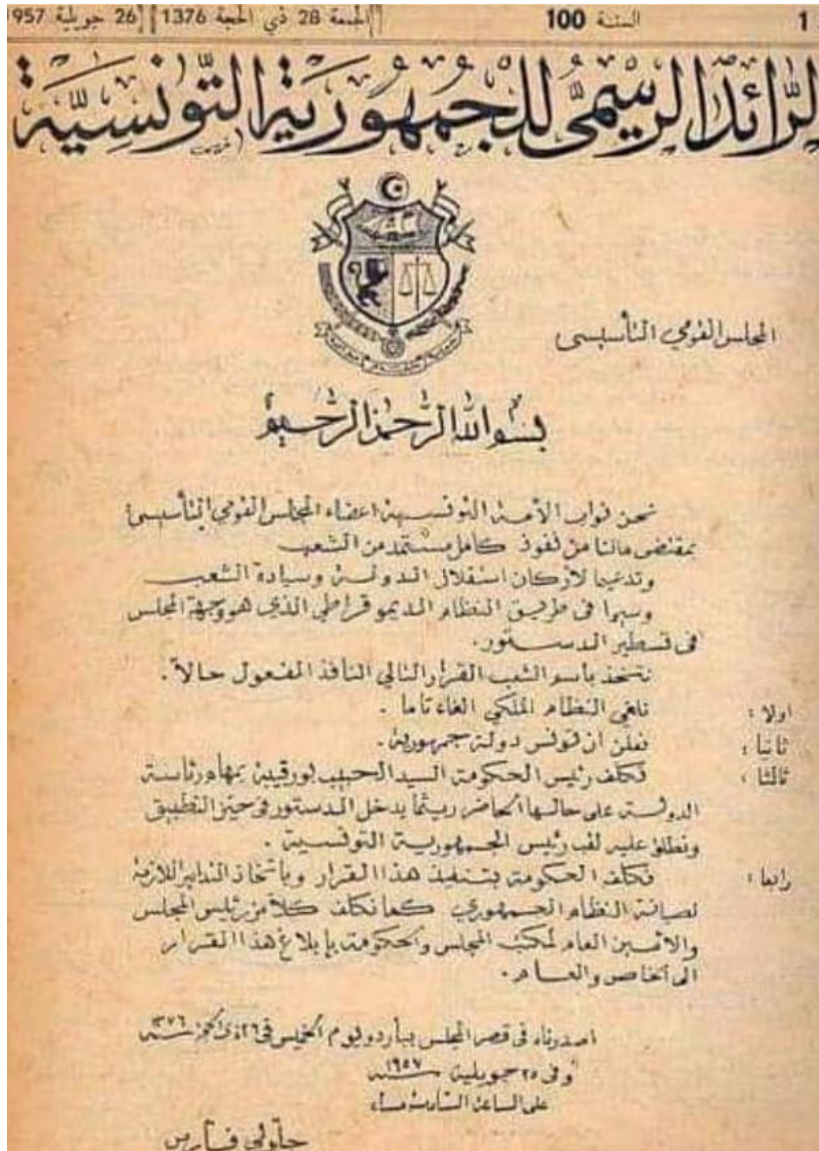 1 السنة 100 الجمعة 28 ذي الحجة 1376 26 جويلية 957
الرّائد الرسمي للجمهورية التونسية
المجلس القومي التأسيسي
بسم الله الرحمن الرحيم
نحن نواب الأمة التونسية اعضاء المجلس القومي التأسيسي؛
بمقتضى مالنا من نفوذ كامل مستمد من الشعب
وتدعيما لأركان استقلال الدولة وسيادة الشعب
وسيرا في طريق النظام الديموقراطي الذي هو وجهة المجلس
في تسطير الدستور.
نتخذ باسم الشعب القرار التالي النافذ المفعول حالاً.
اولا : نلغي النظام الملكي الغاء تاما .
ثانيا : نعلن ان تونس دولة جمهورية.
ثالثا : نكلف رئيس الحكومة السيد الحبيب بورقيبة بمهام رئاسة
الدولة على حالها الحاضر ريثما يدخل الدستور في حيز التطبيق
ونطلق عليه لقب رئيس الجمهورية التونسية .
رابعا : نكلف الحكومة بتنفيذ هذا القرار وباتخاذ التدابير اللازمة
لصيانة النظام الجمهوري كما نكلف كلاً من رئيس المجلس
والامين العام لمكتب المجلس والحكومة بإبلاغ هذا القرار
الى الخاص والعام.
اصدرناه في قصر المجلس بباردو يوم الخميس في ٢٦ ذي الحجة سنة ١٣٧٦
وفي ٢٥ جويلية سنة ١٩٥٧
على الساعة السادسة مساء
جلولي فارس